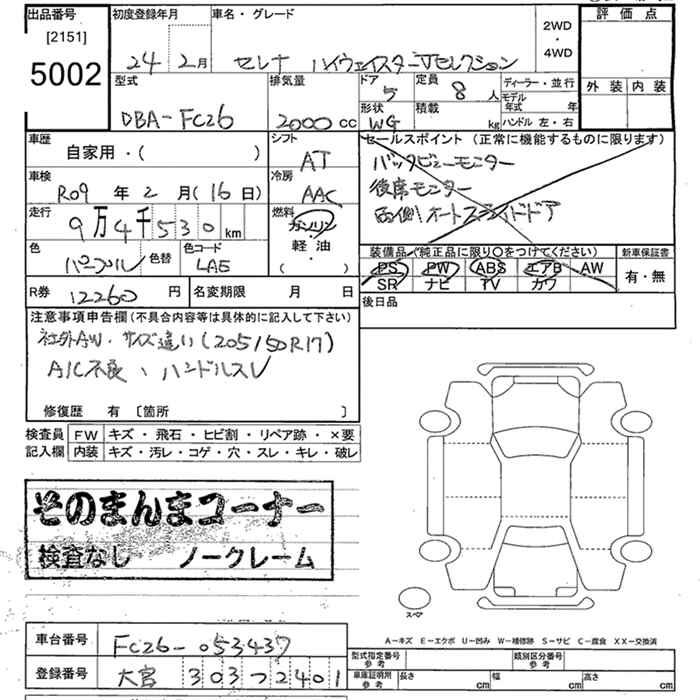 出品番号
[2151]
5002
初度登録年月
24 2月
車名・グレード
セレナ ハイウェイスターVセレクション
2WD
・
4WD
評価点
外装 内装
型式
DBA-FC26
排気量
2000 cc
ドア
5
形状
WG
定員
8 人
積載
kg
ディーラー・並行
モデル年式 年
ハンドル 左・右
車歴
自家用・( )
シフト
AT
セールスポイント (正常に機能するものに限ります)
バックビューモニター
後席モニター
両側オートスライドドア
車検
R09 年 2 月 (16 日)
冷房
AAC
走行
9万4千530 km
燃料
ガソリン
軽・油
( )
色
パープル
色替
色コード
LAE
装備品 (純正品に限り○をつけてください)
PS PW ABS エアB AW
SR ナビ TV カワ
新車保証書
有・無
R券 12260 円
名変期限 月 日
後日品
注意事項申告欄 (不具合内容等は具体的に記入して下さい)
社外AW・サイズ違い (205/50R17)
A/C不良、ハンドルスレ
修復歴 有 〔箇所 〕
検査員 FW キズ・飛石・ヒビ割・リペア跡・×要
記入欄 内装 キズ・汚レ・コゲ・穴・スレ・キレ・破レ
そのまんまコーナー
検査なし ノークレーム
スペア
A-キズ E-エクボ U-凹み W-補修跡 S-サビ C-腐食 XX-交換済
車台番号 FC26-053437
登録番号 大宮 303つ2401
型式指定番号 参考
類別区分番号 参考
車庫証明用 参考 長さ cm 幅 cm 高さ cm